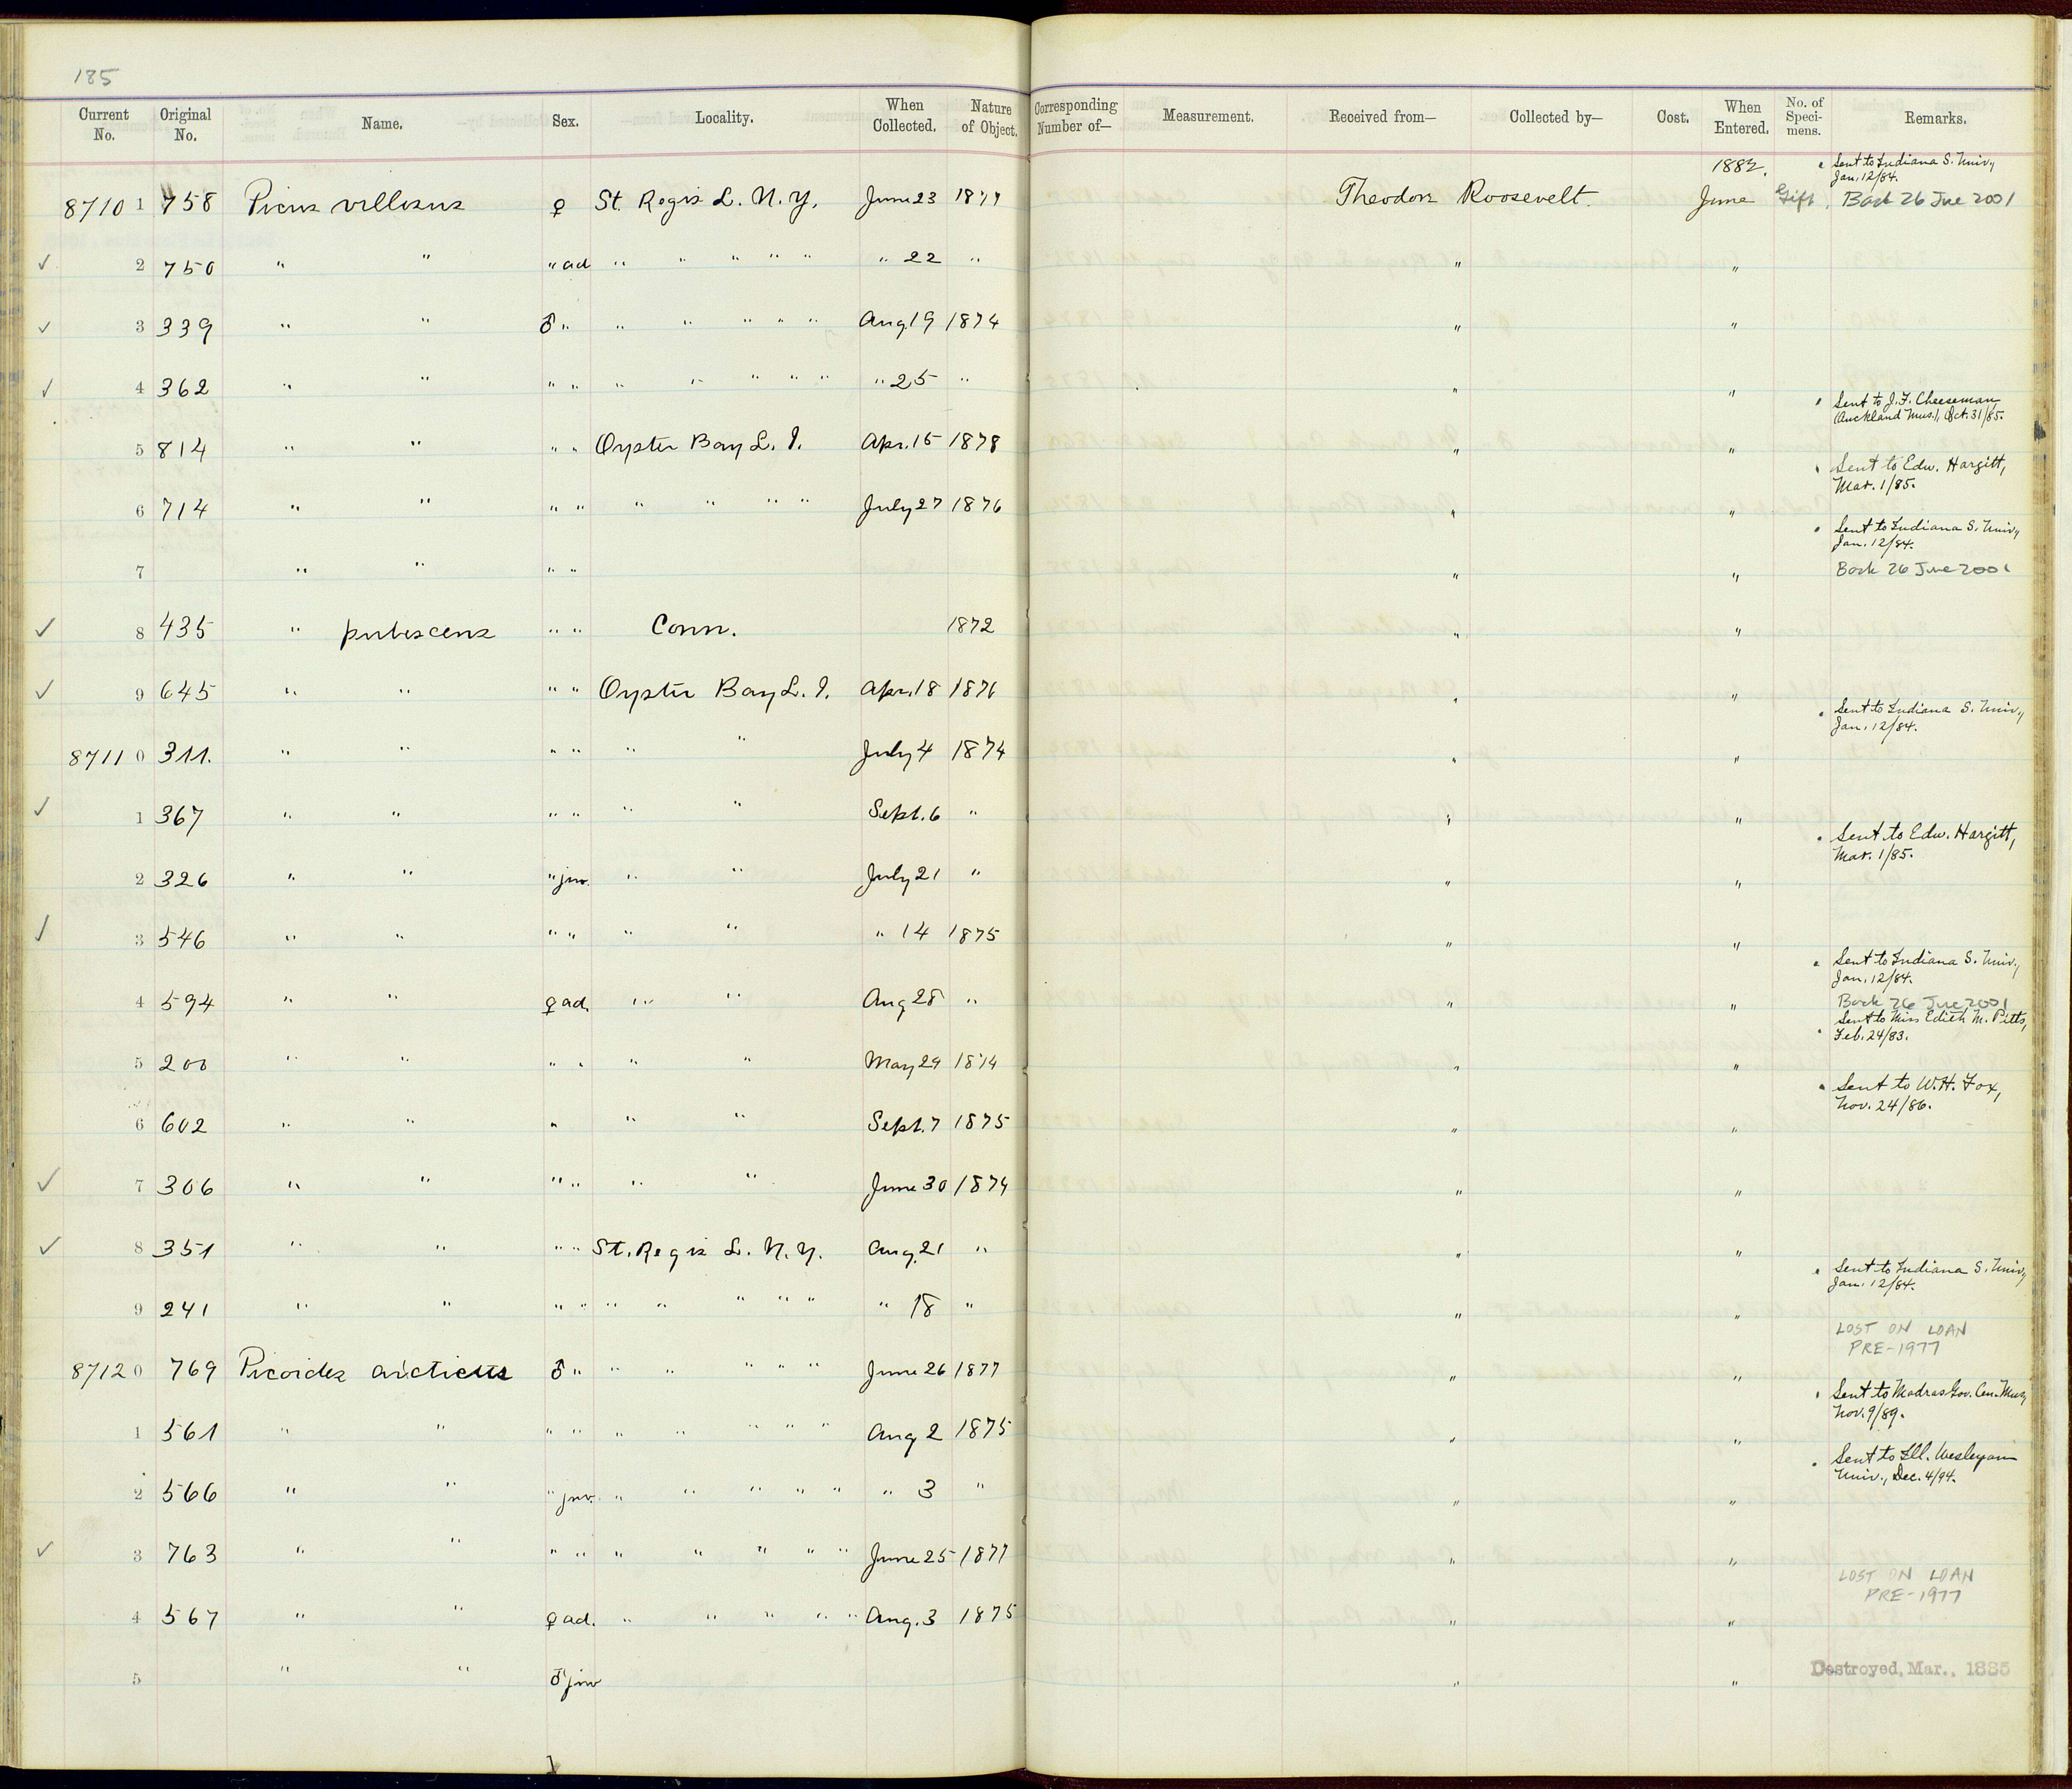 185
Current No. Original No. Name. Sex. Locality. When Collected. Nature of Object. Corresponding Number of— Measurement. Received from— Collected by— Cost. When Entered. No. of Specimens. Remarks.
1882. Sent to Indiana S. Univ., Jan. 12/84.
8710 1 758 Picus villosus ♀ St. Regis L. N. Y. June 23 1877 Theodore Roosevelt. June Gift. Back 26 June 2001
✓ 2 750 " " " ad " " " " " " 22 " " "
✓ 3 339 " " ♂ " " " " " " Aug. 19 1874 " "
✓ 4 362 " " " " " " " " " " 25 " " "
Sent to J. F. Cheeseman (Auckland Mus.), Oct. 31/85.
5 814 " " " " Oyster Bay L. I. Apr. 15 1878 " "
Sent to Edw. Hargitt, Mar. 1/85.
6 714 " " " " " " " " July 27 1876 " "
Sent to Indiana S. Univ., Jan. 12/84.
7 " " " " " " Back 26 June 2001
✓ 8 435 " pubescens " " Conn. 1872 " "
✓ 9 645 " " " " Oyster Bay L. I. Apr. 18 1876 " "
Sent to Indiana S. Univ., Jan. 12/84.
8711 0 311. " " " " " " July 4 1874 " "
✓ 1 367 " " " " " " Sept. 6 " " "
Sent to Edw. Hargitt, Mar. 1/85.
2 326 " " " juv. " " July 21 " " "
✓ 3 546 " " " " " " " 14 1875 " "
Sent to Indiana S. Univ., Jan. 12/84.
4 594 " " ♀ ad. " " Aug 28 " " " Back 26 June 2001
Sent to Miss Edith M. Pitts, Feb. 24/83.
5 200 " " " " " " May 29 1874 " "
Sent to W. H. Fox, Nov. 24/86.
6 602 " " " " " Sept. 7 1875 " "
✓ 7 306 " " " " " " June 30 1874 " "
✓ 8 351 " " " " St. Regis L. N. Y. Aug. 21 " " "
Sent to Indiana S. Univ., Jan. 12/84.
9 241 " " " " " " " " " " 18 " " "
LOST ON LOAN PRE-1977
8712 0 769 Picoides arcticus ♂ " " " " " " June 26 1877 " "
Sent to Madras Gov. Cen. Mus., Nov. 9/89.
1 561 " " " " " " " " " Aug 2 1875 " "
Sent to Ill. Wesleyan Univ., Dec. 4/94.
2 566 " " " juv. " " " " " " 3 " " "
✓ 3 763 " " " " " " " " " June 25 1877 " "
LOST ON LOAN PRE-1977
4 567 " " ♀ ad. " " " " " Aug. 3 1875 " "
5 " " ♂ juv " " Destroyed, Mar., 1885